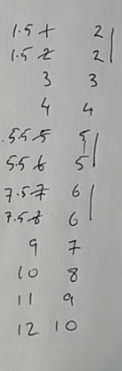 1.5 1 2
1.5 2 2
3 3
4 4
5.5 5 5
5.5 6 5
7.5 7 6
7.5 8 6
9 7
10 8
11 9
12 10